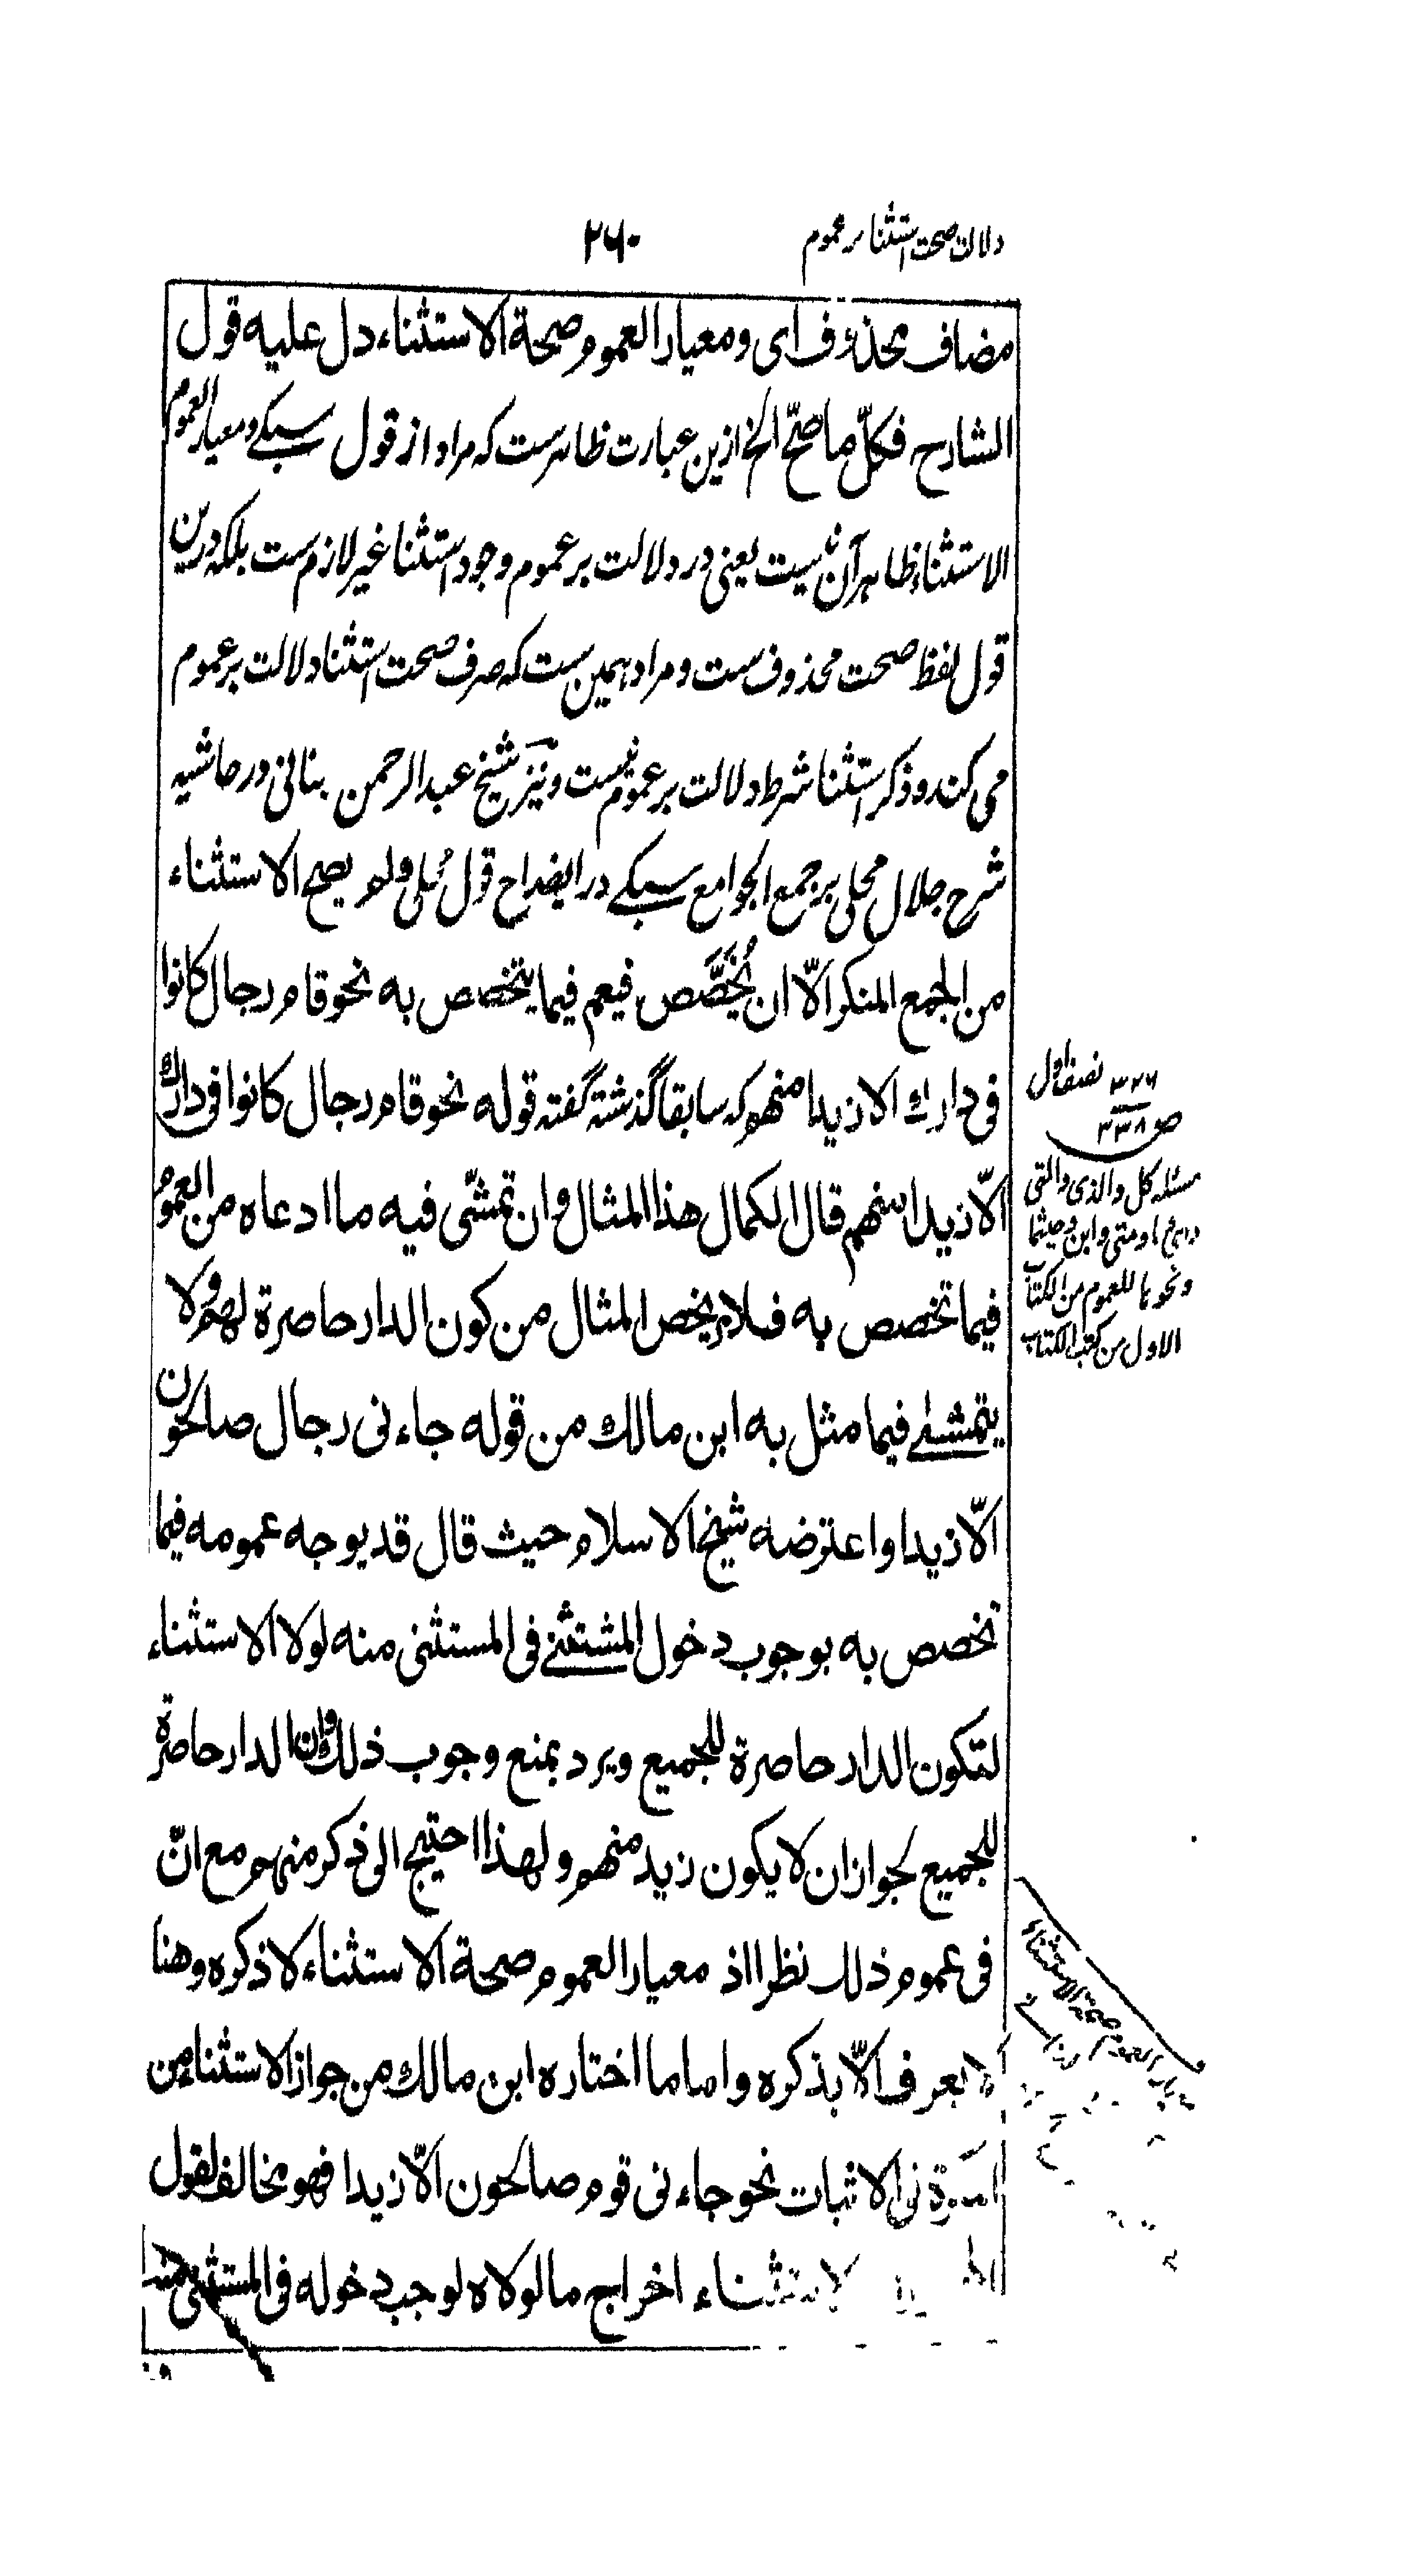 دلالت صحت استثنا بر عموم
۲۶۰
مضاف محذوف ای ومعیار العموم صحة الاستثناء دل علیه قول
الشارح فکلّ ما صحّ الخ ازین عبارت ظاهرست که مراد از قول سبکے ومعیار العموم
الاستثناء ظاهر آن نیست یعنی در دلالت بر عموم وجود استثنا غیر لازم ست بلکه درین
قول لفظ صحت محذوف ست ومراد همین ست که صرف صحت استثنا دلالت بر عموم
می کند وذکر استثنا شرط دلالت بر عموم نیست ونیز شیخ عبد الرحمن بنانی در حاشیه
شرح جلال محلی بر جمع الجوامع سبکے در ایضاح قول محلی ولم یصح الاستثناء
من الجمع المنکر الّا ان یُخَصَّص فیعم فیما یتخصص به نحو قام رجال کانوا
فی دارك الا زیدا منهم که سابقا گذشته گفته قوله نحو قام رجال کانوا فی دارك
الّا زیدا منهم قال الکمال هذا المثال وان تمشّی فیه ما ادعاه من العموم
فیما تخصص به فلامر یخص المثال من کون الدار حاصرة لهم ولا
یتمشے فیما مثل به ابن مالك من قوله جاءنی رجال صالحون
الّا زیدا واعترضه شیخ الاسلام حیث قال قد یوجه عمومه فیما
تخصص به بوجوب دخول المشتثنے فی المستثنی منه لولا الاستثناء
لتکون الدار حاصرة للجمیع ویرد بمنع وجوب ذلك وان الدار حاصرة
للجمیع لجواز ان لا یکون زید منهم ولهذا احتیج الی ذکر منهم مع انّ
فی عموم ذلك نظرا اذ معیار العموم صحة الاستثناء لا ذکره وهنا
لا یعرف الّا بذکره واما ما اختاره ابن مالك من جواز الاستثناء من
النکرة فی الاثبات نحو جاءنی قوم صالحون الّا زیدا فهو مخالف لقول
الاستثناء اخراج ما لولاه لوجب دخوله فی المستثنی منه
۳۲۶ نصف اول
صـ ۳۳۸
مسئله کل والذی والتی
وای وما ومتی واین وحیثما
ونحوها للعموم من الکتاب
الاول من کتب الکتاب
معیار العموم صحة الاستثناء